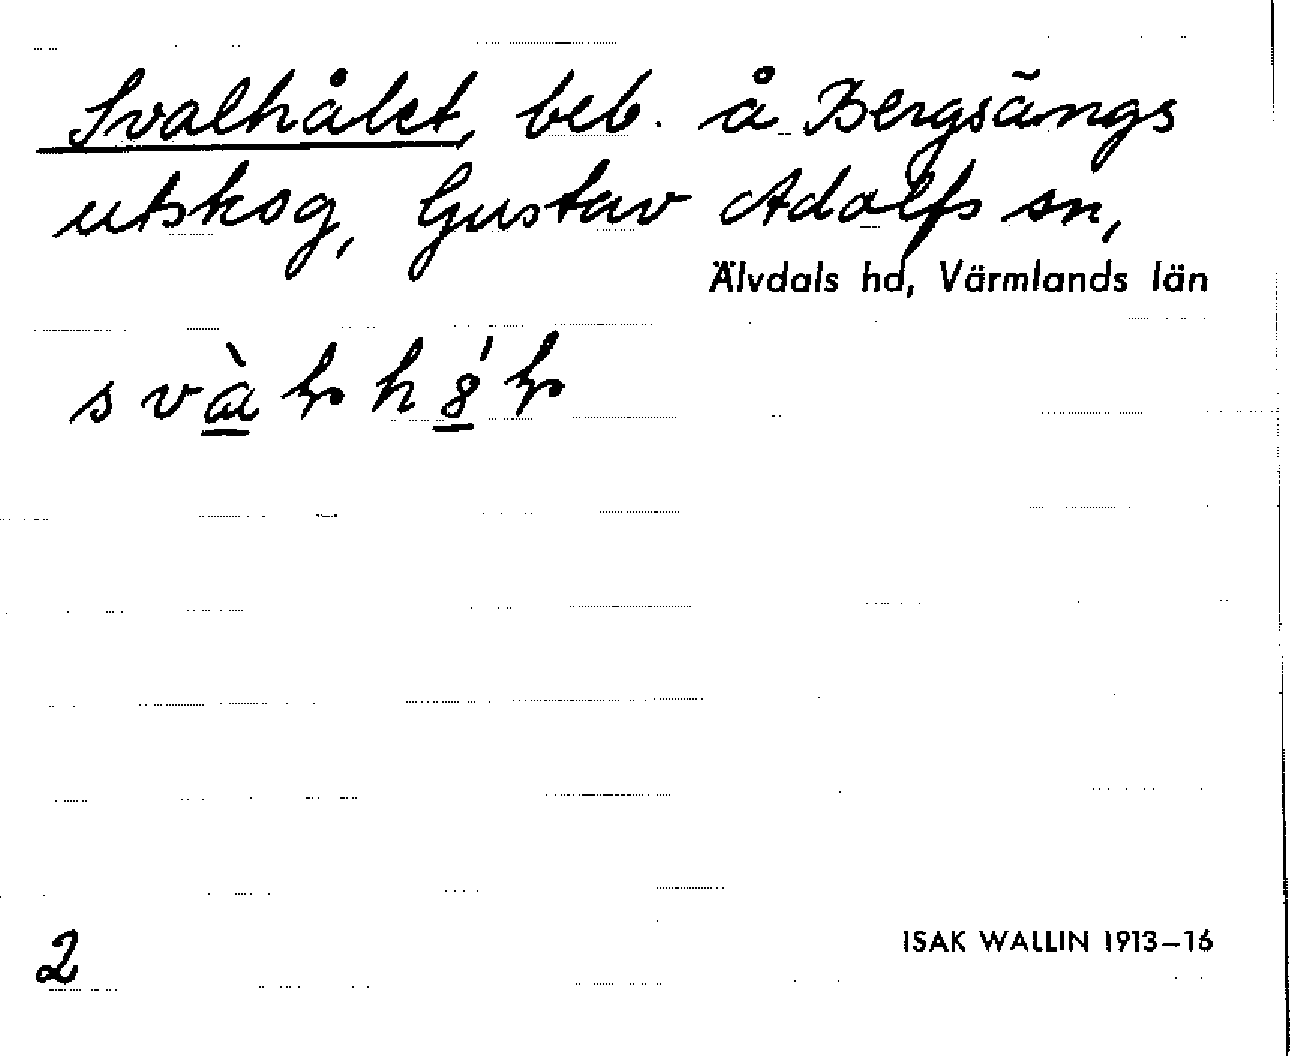 Svalhålet, beb. å Bergsängs
utskog, Gustav Adolfs sn,
Älvdals hd, Värmlands län
2
ISAK WALLIN 1913–16